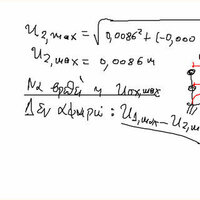 U₂,max = √0,0086² + (-0,000
U₂,max = 0,0086 m
Να βρεθεί η Uπx,max
Δεν αφαιρώ: U₁,max - U₂,m